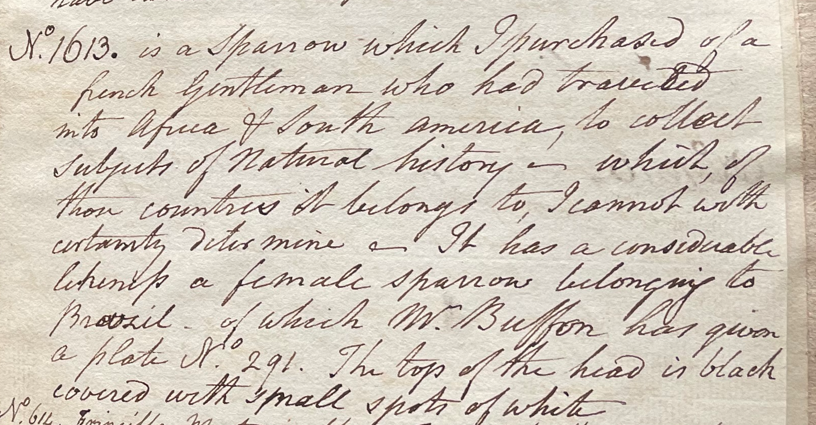 have
No. 1613. is a Sparrow which I purchased of a
french Gentleman who had travelled
into Africa & South america, to collect
subjects of Natural history - which, of
thou countries it belongs to, I cannot with
certainty determine - It has a considerable
likeness a female sparrow belonging to
Brazil - of which Mr. Buffon has given
a plate No. 291. The top of the head is black
covered with small spots of white
No. 614.